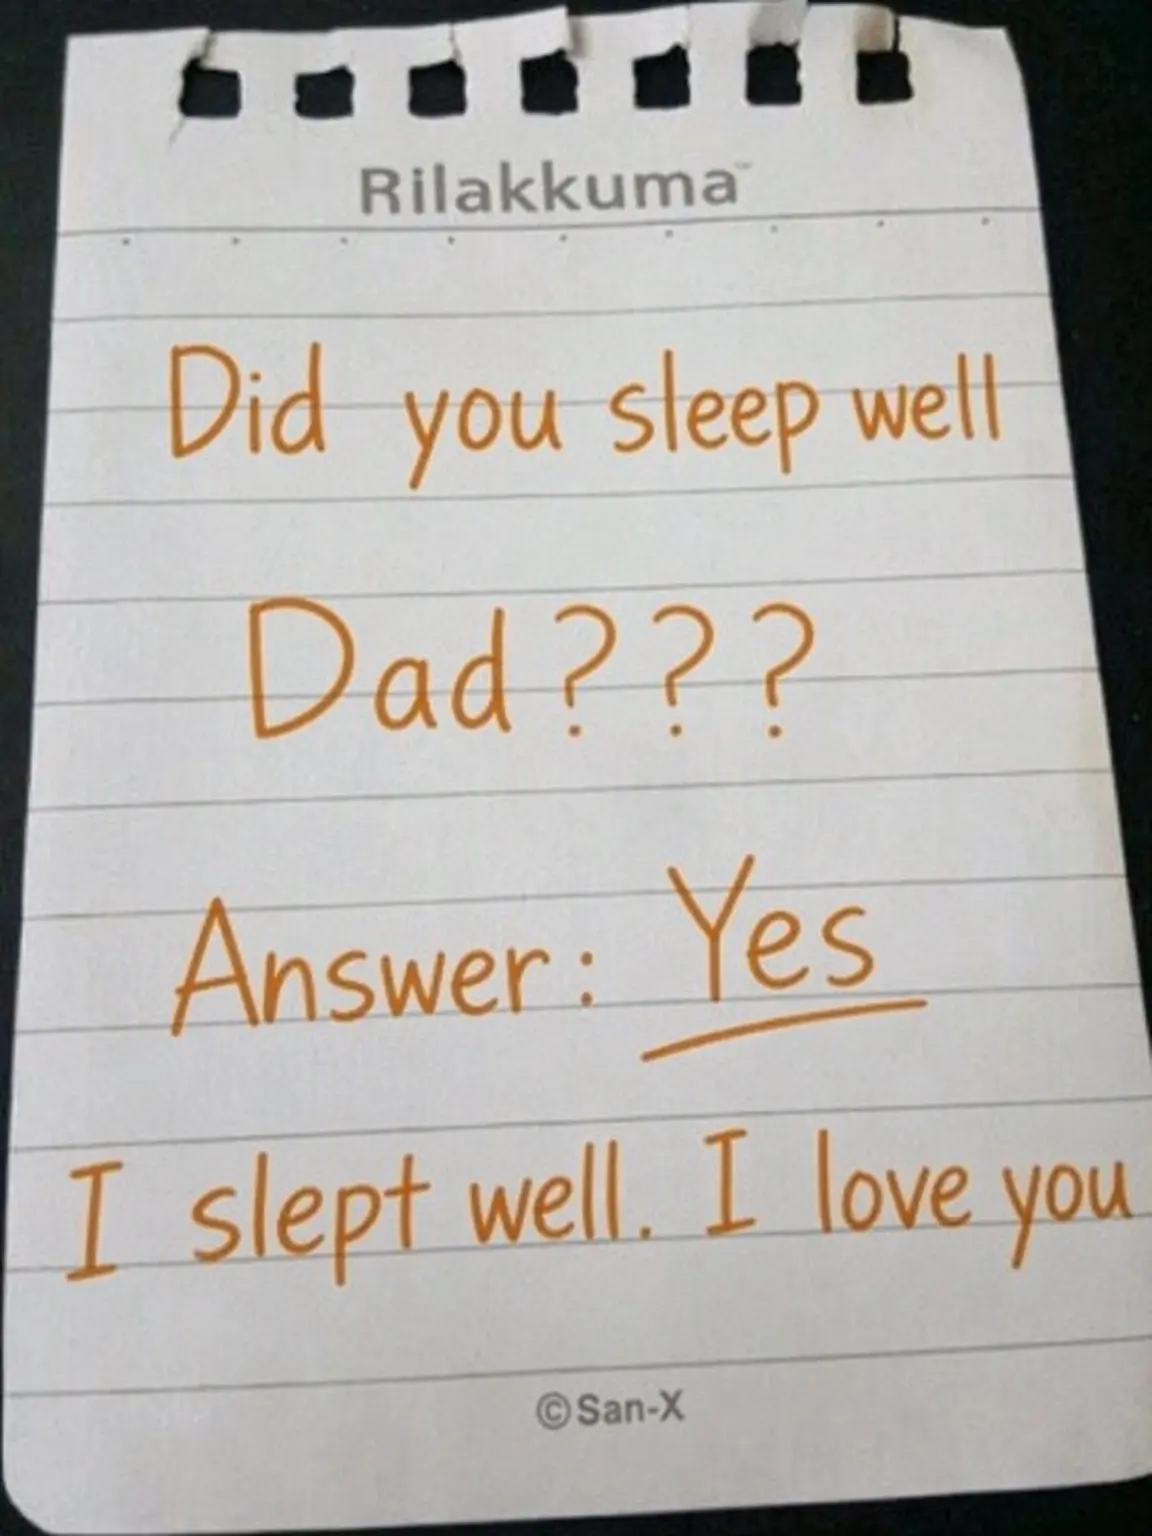 Rilakkuma™
Did you sleep well
Dad???
Answer: Yes
I slept well. I love you
©San-X